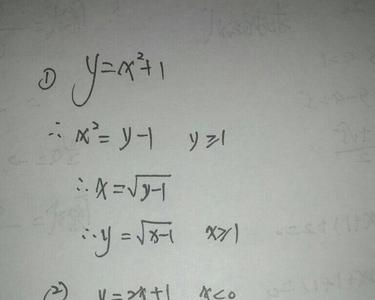 ① y=x²+1
∴ x²=y-1 y≥1
∴ x=√(y-1)
∴ y=√(x-1) x≥1
(2) y=2x+1 x<0